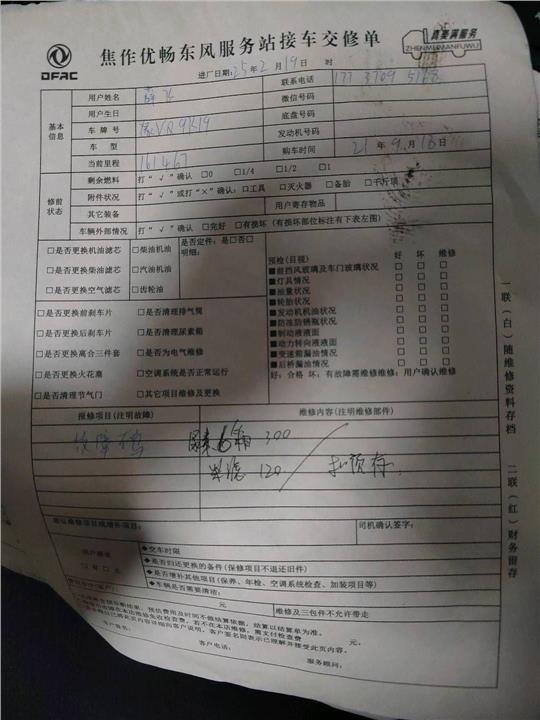 DFAC
焦作优畅东风服务站接车交修单
真要满服务
ZHENMEIMANFUWU
进厂日期: 25年2月19日 时
基本信息
用户姓名
联系电话
用户生日
微信号码
车牌号
底盘号码
车型
发动机号码
当前里程 161467
购车时间 21年9月18日
修前状态
剩余燃料 打“√”确认 □0 □1/4 □1/2 □1
附件状况 打“√”或打“×”确认: □工具 □灭火器 □备胎 □千斤顶
其它装备 用户寄存物品
车辆外部情况 打“√”确认 □完好 □有损坏 (有损坏部位标注有下表左图)
□是否更换机油滤芯 □柴油机油 是否定件: 是□否□
明细:
□是否更换柴油滤芯 □汽油机油
□是否更换空气滤芯 □齿轮油
□是否更换前刹车片 □是否清理排气筒
□是否更换后刹车片 □是否清理尿素箱
□是否更换离合三件套 □是否为电气维修
□是否更换火花塞 □空调系统是否正常运行
□是否清理节气门 □其它项目维修及更换
预检(目视) 好 坏 维修
■前挡风玻璃及车门玻璃状况 □ □ □
■灯具情况 □ □ □
■油量状况 □ □ □
■轮胎状况 □ □ □
■发动机机油状况 □ □ □
■防冻防锈瓶状况 □ □ □
■制动液液面 □ □ □
■动力转向液液面 □ □ □
■变速箱漏油情况 □ □ □
■后桥漏油情况 □ □ □
好: 合格 坏: 有故障需维修维修: 用户确认维修
报修项目(注明故障) 维修内容(注明维修部件)
故障
300
120
司机确认签字:
◆交车时限
◆是否归还更换的备件(保修项目不退还旧件)
◆是否增补其他项目(保养、年检、空调系统检查、加装项目等)
◆车辆是否需要清洁:
元 维修及三包件不允许带走
元。
客户签名:
客户电话:
服务顾问:
一联(白)随维修资料存档 二联(红)财务留存